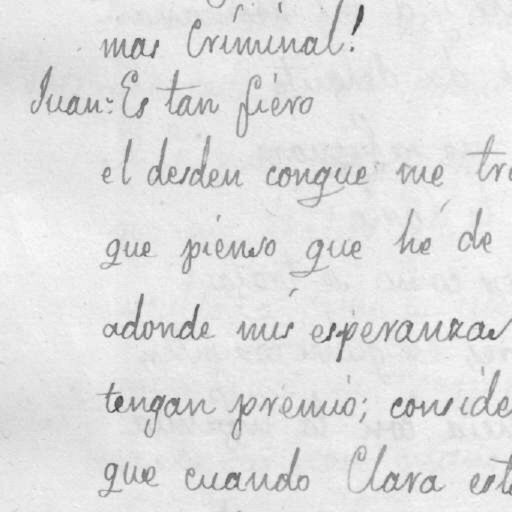 mas Criminal!
Juan: Es tan fiero
el desden conque me tra
que pienso que hé de
adonde mis esperanzas
tengan premio; conside
que cuando Clara esta